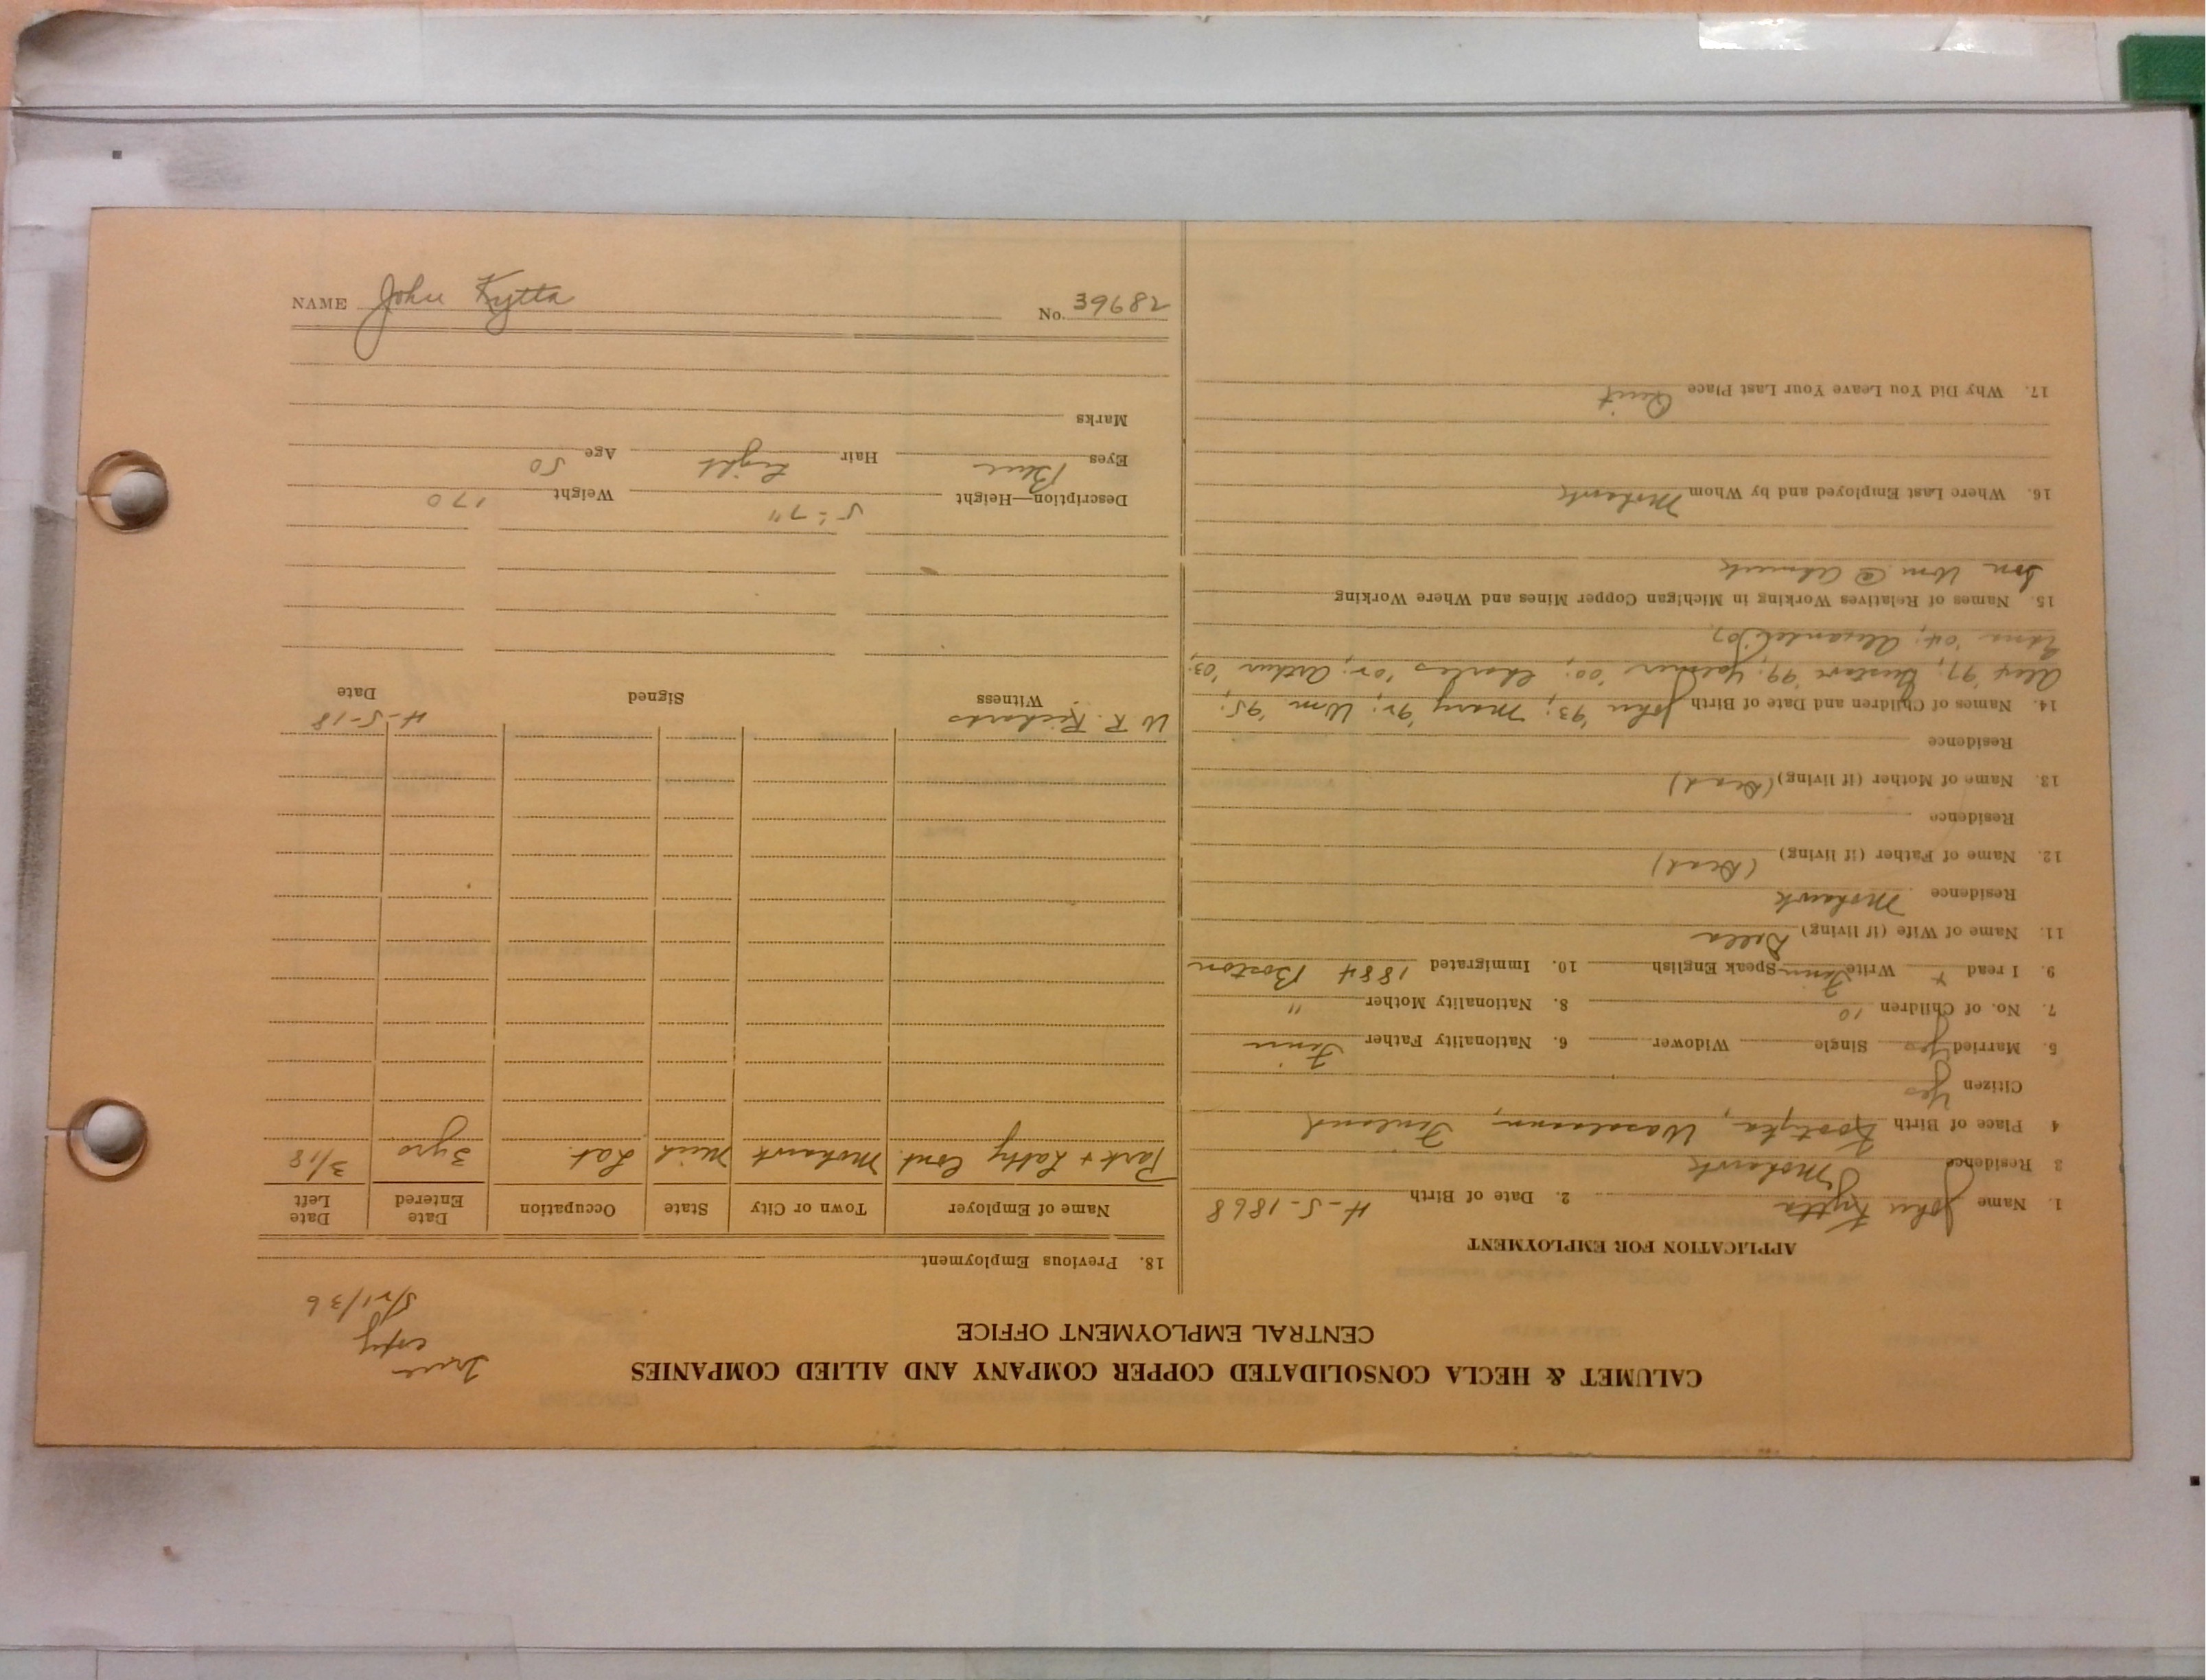 CALUMET & HECLA CONSOLIDATED COPPER COMPANY AND ALLIED COMPANIES
CENTRAL EMPLOYMENT OFFICE
True
copy
5/21/36
APPLICATION FOR EMPLOYMENT
1. Name John Kytta 2. Date of Birth 4-5-1868
3 Residence Mohawk
4 Place of Birth Wasalaann, Finland
Citizen Yes
5. Married Yes Single Widower 6. Nationality Father Finn
7. No. of Children 10 8. Nationality Mother "
9. I read x Write Finn Speak English 10. Immigrated 1884 Boston
11. Name of Wife (if living) Della
Residence Mohawk
12. Name of Father (if living) (Dead)
Residence
13. Name of Mother (if living) (Dead)
Residence
14. Names of Children and Date of Birth John '93; Mary '92; Wm '95;
Alex '97; Gustave '99; '00; Charles '02; Arthur '03;
'04; Alexander '07,
15. Names of Relatives Working in Michigan Copper Mines and Where Working
Son Wm @ Ahmeek
16. Where Last Employed and by Whom Mohawk
17. Why Did You Leave Your Last Place Quit
18. Previous Employment
Name of Employer Town or City State Occupation Date Entered Date Left
Park + Latty Cont. Mohawk Mich Lab. 3 yrs 3/18
W. R. Richards 4-5-18
Witness Signed Date
Description—Height 5'-7" Weight 170
Eyes Blue Hair Light Age 50
Marks
NAME John Kytta No. 39682